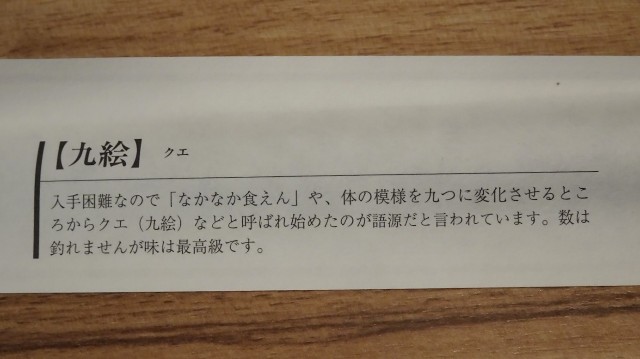 【九絵】 クエ
入手困難なので「なかなか食えん」や、体の模様を九つに変化させるとこ
ろからクエ（九絵）などと呼ばれ始めたのが語源だと言われています。数は
釣れませんが味は最高級です。